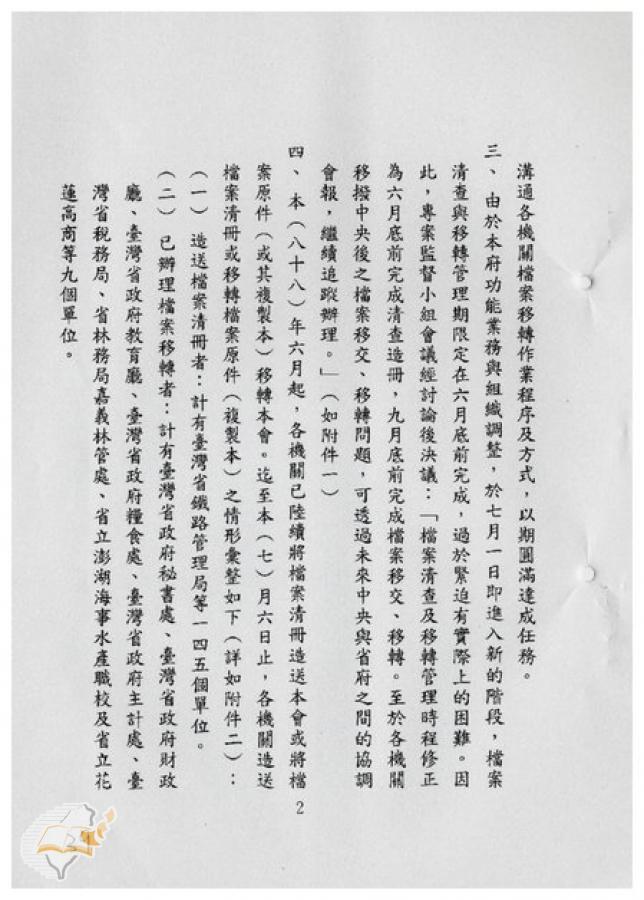 溝通各機關檔案移轉作業程序及方式，以期圓滿達成任務。
三、由於本府功能業務與組織調整，於七月一日即進入新的階段，檔案
清查與移轉管理期限定在六月底前完成，過於緊迫有實際上的困難。因
此，專案監督小組會議經討論後決議：「檔案清查及移轉管理時程修正
為六月底前完成清查造冊，九月底前完成檔案移交、移轉。至於各機關
移撥中央後之檔案移交、移轉問題，可透過未來中央與省府之間的協調
會報，繼續追蹤辦理。」（如附件一）
四、本（八十八）年六月起，各機關已陸續將檔案清冊造送本會或將檔
案原件（或其複製本）移轉本會。迄至本（七）月六日止，各機關造送
檔案清冊或移轉檔案原件（複製本）之情形彙整如下（詳如附件二）：
（一）造送檔案清冊者：計有臺灣省鐵路管理局等一四五個單位。
（二）已辦理檔案移轉者：計有臺灣省政府秘書處、臺灣省政府財政
廳、臺灣省政府教育廳、臺灣省政府糧食處、臺灣省政府主計處、臺
灣省稅務局、省林務局嘉義林管處、省立澎湖海事水產職校及省立花
蓮高商等九個單位。
2